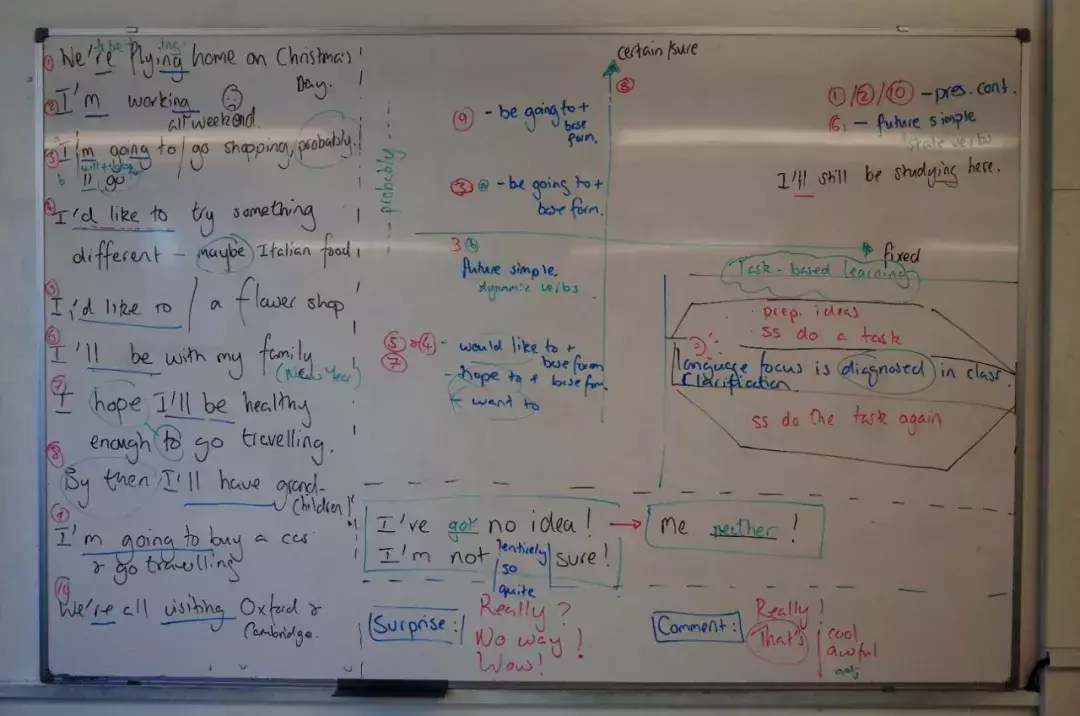 ① We're flying home on Christmas
Day.
② I'm working ☹
all weekend.
③ I'm going to / go shopping, probably.
b 'll go
④ I'd like to try something
different – maybe Italian food
⑤ I'd like to / a flower shop
⑥ I'll be with my family
(New Year)
⑦ I hope I'll be healthy
enough to go travelling.
⑧ By then I'll have grand-
children!
⑨ I'm going to buy a car
& go travelling
⑩ We're all visiting Oxford &
Cambridge.
probably
certain/sure
⑧
⑨ - be going to +
base
form.
③ ⓐ - be going to +
base form.
① /② /⑩ - pres. cont.
⑥, - future simple
state verbs
I'll still be studying here.
fixed
3 ⓑ
future simple
dynamic verbs.
⑤ & ④ - would like to +
base form
⑦
- hope to + base form
- want to
Task-based learning
prep. ideas
ss do a task
language focus is diagnosed in class.
clarification.
ss do the task again
I've got no idea! → Me neither!
I'm not entirely sure!
so
quite
Surprise:
Really?
No way!
Wow!
Comment:
Really!
That's cool
awful
adj